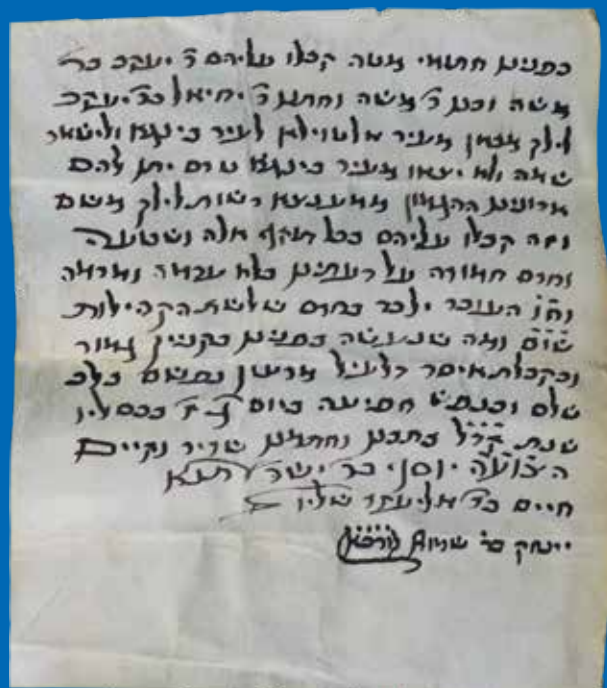 בפנינו חתומי מטה קבלו עליהם ר' יעקב בר'
משה ובנו ר' משה וחתנו ר' יחיאל בר' יעקב
לילך מכאן מעיר אלטוילא לעיר בינגא ולישאר
שמה ולא יצאו מעיר בינגא טרם יתן להם
אדונינו ההגמון ממענצא רשות לילך משם
וזה קבלו עליהם בכל תוקף אלה ושבועה
וחרם חמורה על דעתינו בלא ערמה ומרמה
וח"ו העובר ילכד בחרם שלשת הקהילות
שו"ם ומה שנעשה בפנינו בקנין גמור
ובקבלת איסר דלעיל מרצון נפשם בלב
שלם ובנפש חפיצה ביום בכסליו
שנת כתבנו וחתמנו שריר וקיים
יוסף בר
חיים בר' אליעזר
יצחק בר שמואל